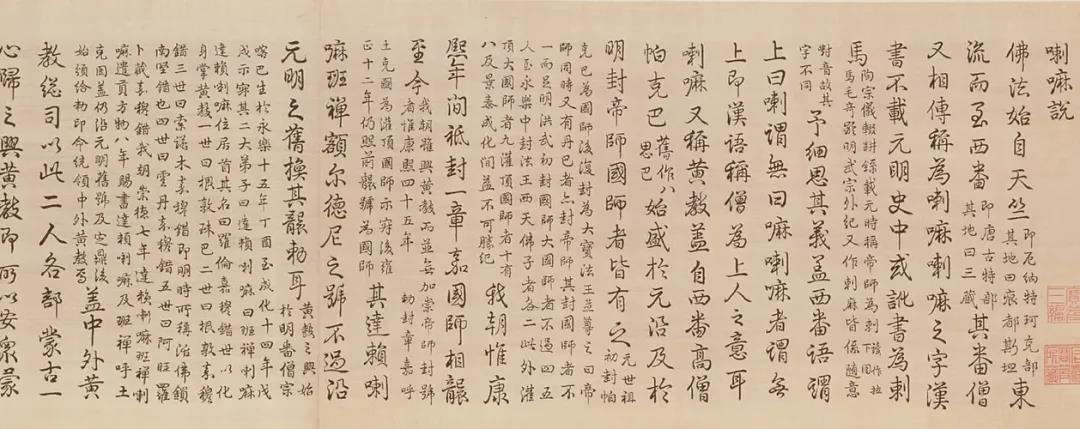 喇嘛說
佛法始自天竺
即厄納特珂克部
其地曰痕都斯坦
東
流而至西番
即唐古特部
其地曰三藏
其番僧
又相傳稱為喇嘛喇嘛之字漢
書不載元明史中或訛書為剌
馬
陶宗儀輟耕録載元時稱帝師為剌
馬毛奇齡明武宗外紀又作剌麻皆係隨意
對音故其
字不同
予細思其義蓋西番語謂
上曰喇謂無曰嘛喇嘛者謂無
上即漢語稱僧為上人之意耳
喇嘛又稱黃教蓋自西番高僧
帕克巴
舊作八
思巴
始盛於元沿及於
明封帝師國師者皆有之
元世祖
初封帕
克巴為國師後復封為大寶法王並尊之曰帝
師同時又有丹巴者亦封帝師其封國師者不
一而足明洪武初封國師大國師者不過四五
人至永樂中封法王西天佛子者各二此外灌
頂大國師者九灌頂國師者十有
八及景泰成化間益不可勝紀
我朝惟康
熙年間祗封一章嘉國師相襲
至今
我朝雖興黃教而並無加崇帝師封號
者惟康熙四十五年 勅封章嘉呼
土克圖為灌頂國師示寂後雍
正十二年仍照前襲號為國師
其達賴喇
嘛班禪額爾德尼之號不過沿
元明之舊換其襲勅耳
黃教之興始
於明番僧宗
喀巴生於永樂十五年丁酉至成化十四年戊
戌示寂其二大弟子曰達賴喇嘛曰班禪喇嘛
達賴喇嘛位居首其名曰羅倫嘉穆錯世以化
身掌黃教一世曰根敦珠巴二世曰根敦嘉穆
錯三世曰索諾木嘉穆錯即明時所稱活佛鎖
南堅錯也四世曰雲丹嘉穆錯五世曰阿旺羅
卜藏嘉穆錯我朝崇德七年達賴喇嘛班禪喇
嘛遣貢方物八年賜書達賴喇嘛及班禪呼土
克圖蓋仍沿元明舊號及定鼎後
始頒給勅印命統領中外黃教焉
蓋中外黃
教總司以此二人各部蒙古一
心歸之興黃教即所以安眾蒙